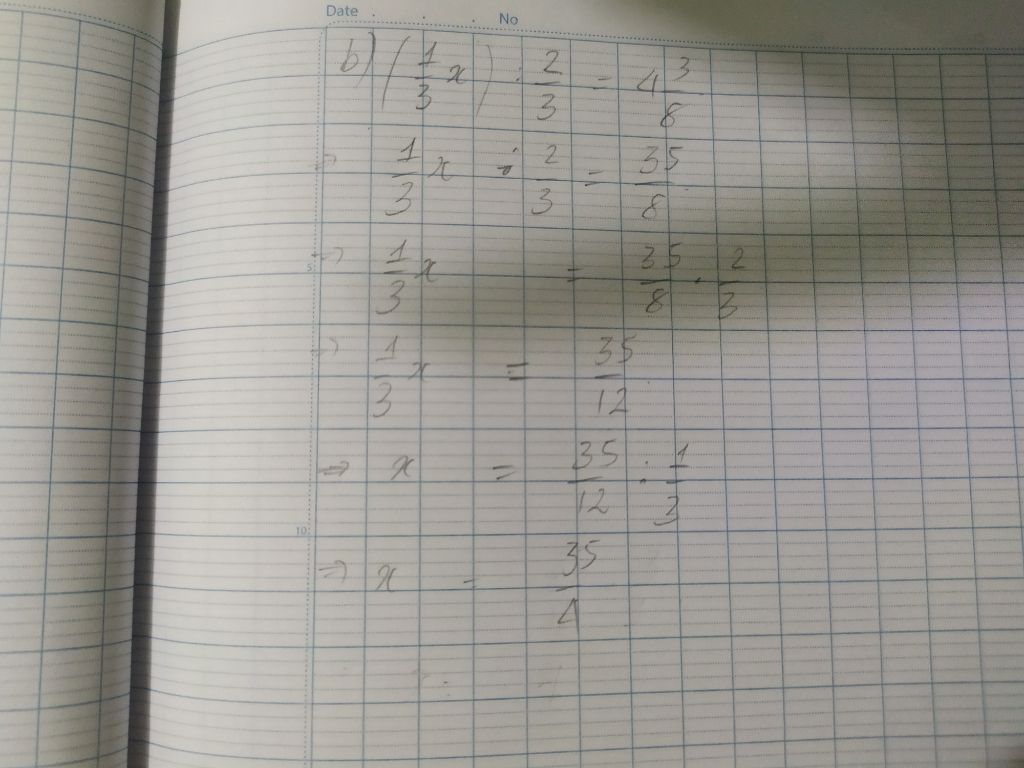 Date . . . No
b) (1/3 x) : 2/3 = 4 3/8
=> 1/3 x : 2/3 = 35/8
5 => 1/3 x = 35/8 . 2/3
=> 1/3 x = 35/12
=> x = 35/12 : 1/3
10 => x = 35/4